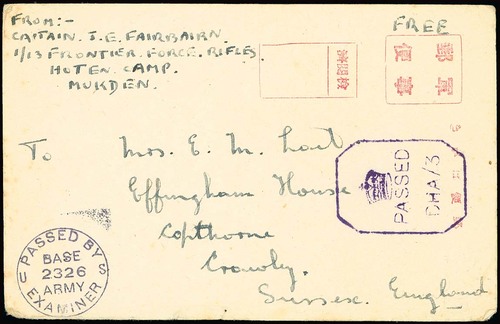 FROM:-
CAPTAIN. J.E. FAIRBAIRN.
1/13 FRONTIER. FORCE. RIFLES
HOTEN. CAMP.
MUKDEN.
FREE
To Mrs. E. M.
Effingham House
Copthorne
Crawley.
Sussex. England
PASSED
DHA/3
PASSED BY
BASE
2326
ARMY
EXAMINER
U S